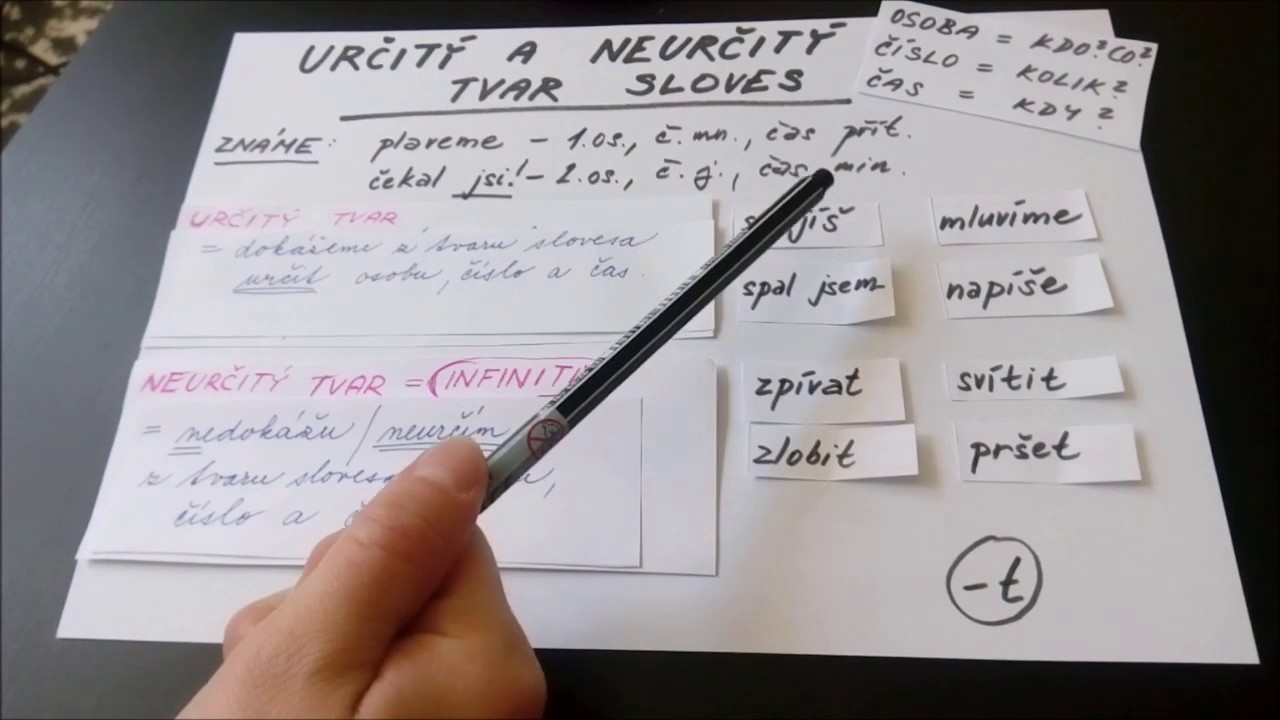 URČITÝ A NEURČITÝ
TVAR SLOVES
OSOBA = KDO? CO?
ČÍSLO = KOLIK?
ČAS = KDY?
ZNÁME: plaveme - 1.os., č. mn., čas přít.
čekal jsi! - 2.os., č. j., čas min.
URČITÝ TVAR
= dokážeme z tvaru slovesa
určit osobu, číslo a čas.
mluvíme
spal jsem
napíše
NEURČITÝ TVAR =
= nedokážu / neurčím
z tvaru
číslo a
zpívat
svítit
zlobit
pršet
-t